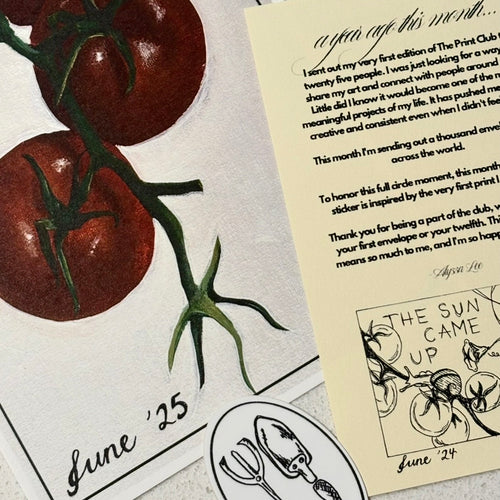 a year ago this month...
I sent out my very first edition of The Print Club
twenty five people. I was just looking for a
share my art and connect with people around
Little did I know it would become one of the
meaningful projects of my life. It has pushed
creative and consistent even when I didn't
This month I'm sending out a thousand
across the world.
To honor this full circle moment, this month
sticker is inspired by the very first print I
Thank you for being a part of the club,
your first envelope or your twelfth. This
means so much to me, and I'm so
-Alyssa Lee
THE SUN
CAME
UP
June '24
June '25